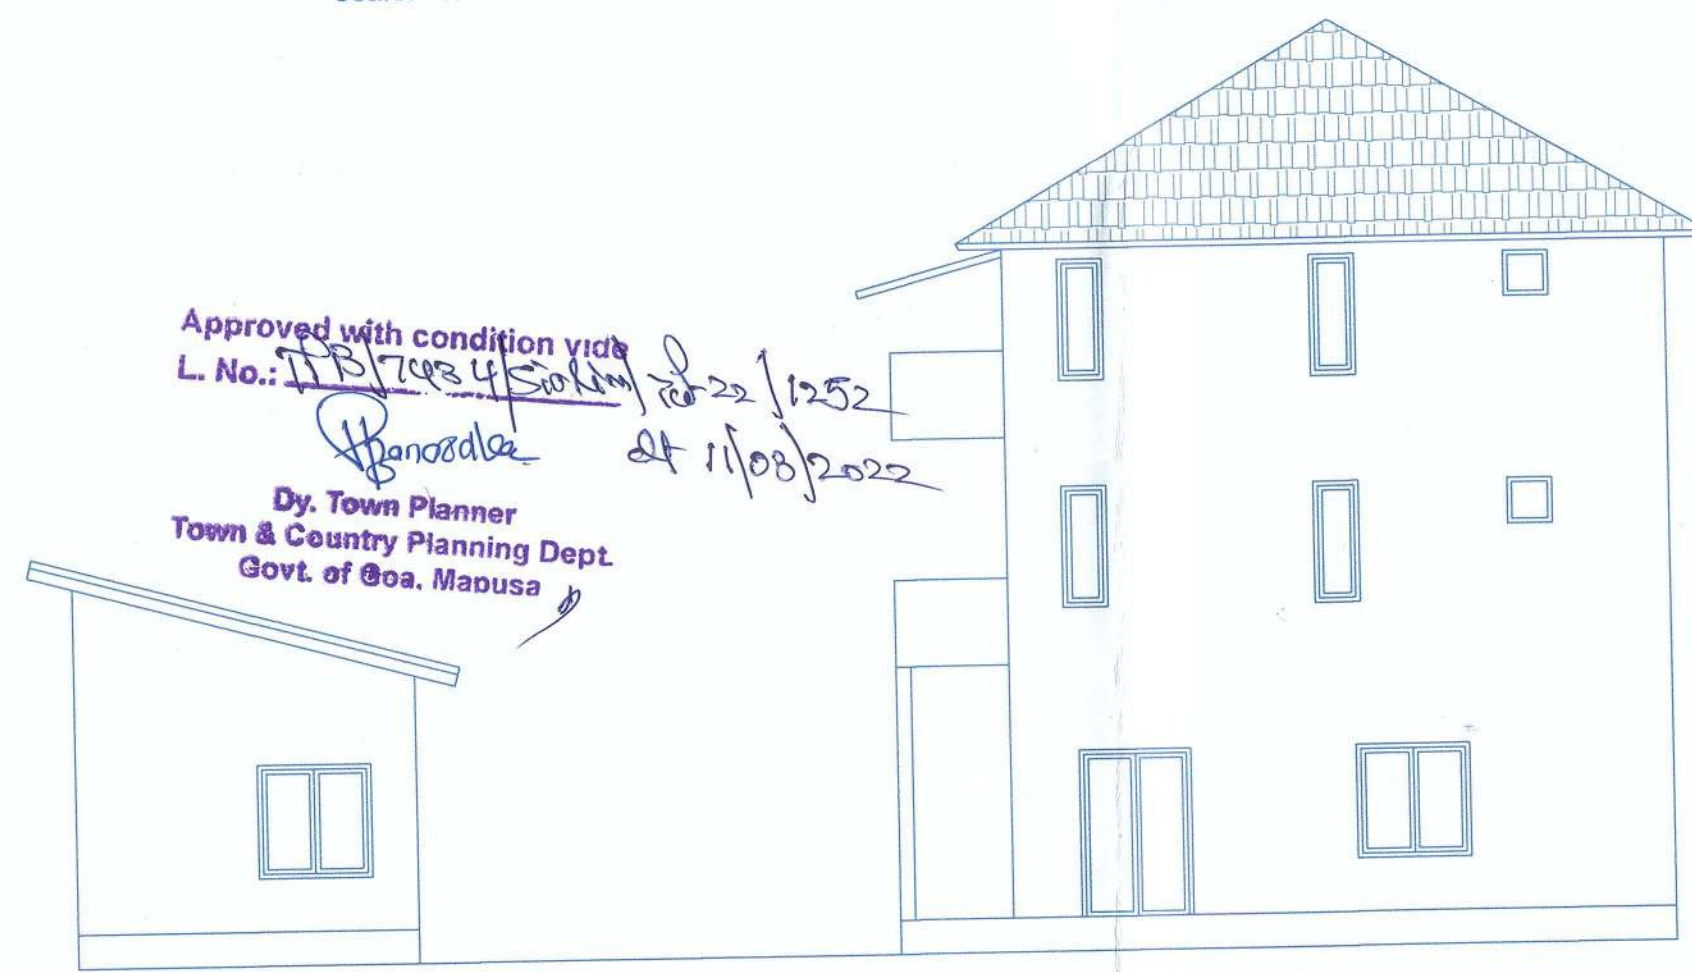 Approved with condition vide
L. No.: TPB/7434/Siolim/TCP-22/1252
dt 11/03/2022
Dy. Town Planner
Town & Country Planning Dept.
Govt. of Goa. Mapusa